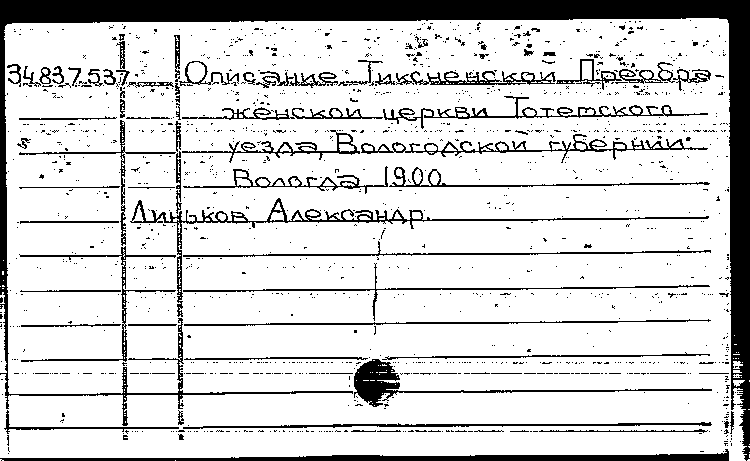 34.837.537. Описание Тиксненской Преобра-
женской церкви Тотемского
уезда, Вологодской губернии.
Вологда, 1900.
Линьков, Александр.